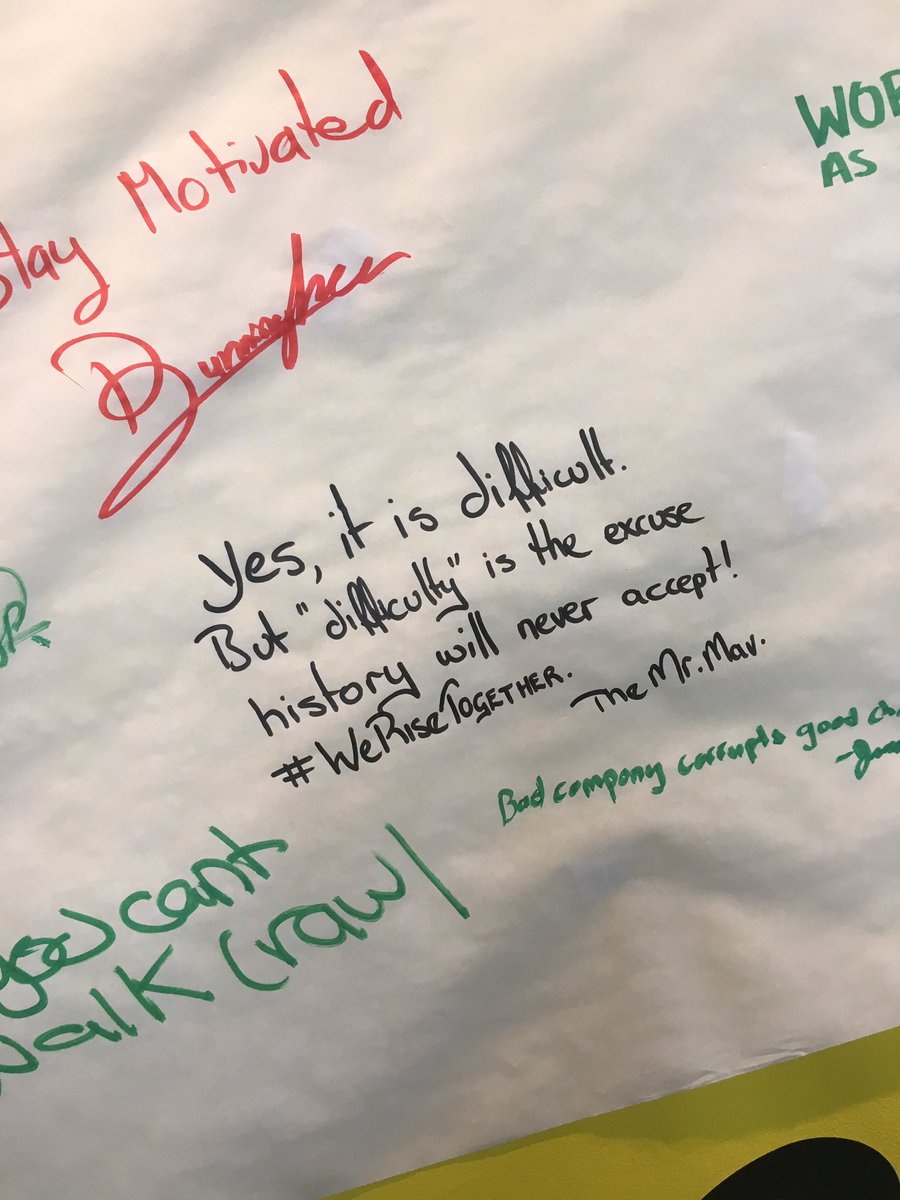 Stay Motivated
AS
Yes, it is difficult.
But "difficulty" is the excuse
history will never accept!
#WeRiseTogether.
The Mr. Mav.
Bad company corrupts good
you cant
walk crawl